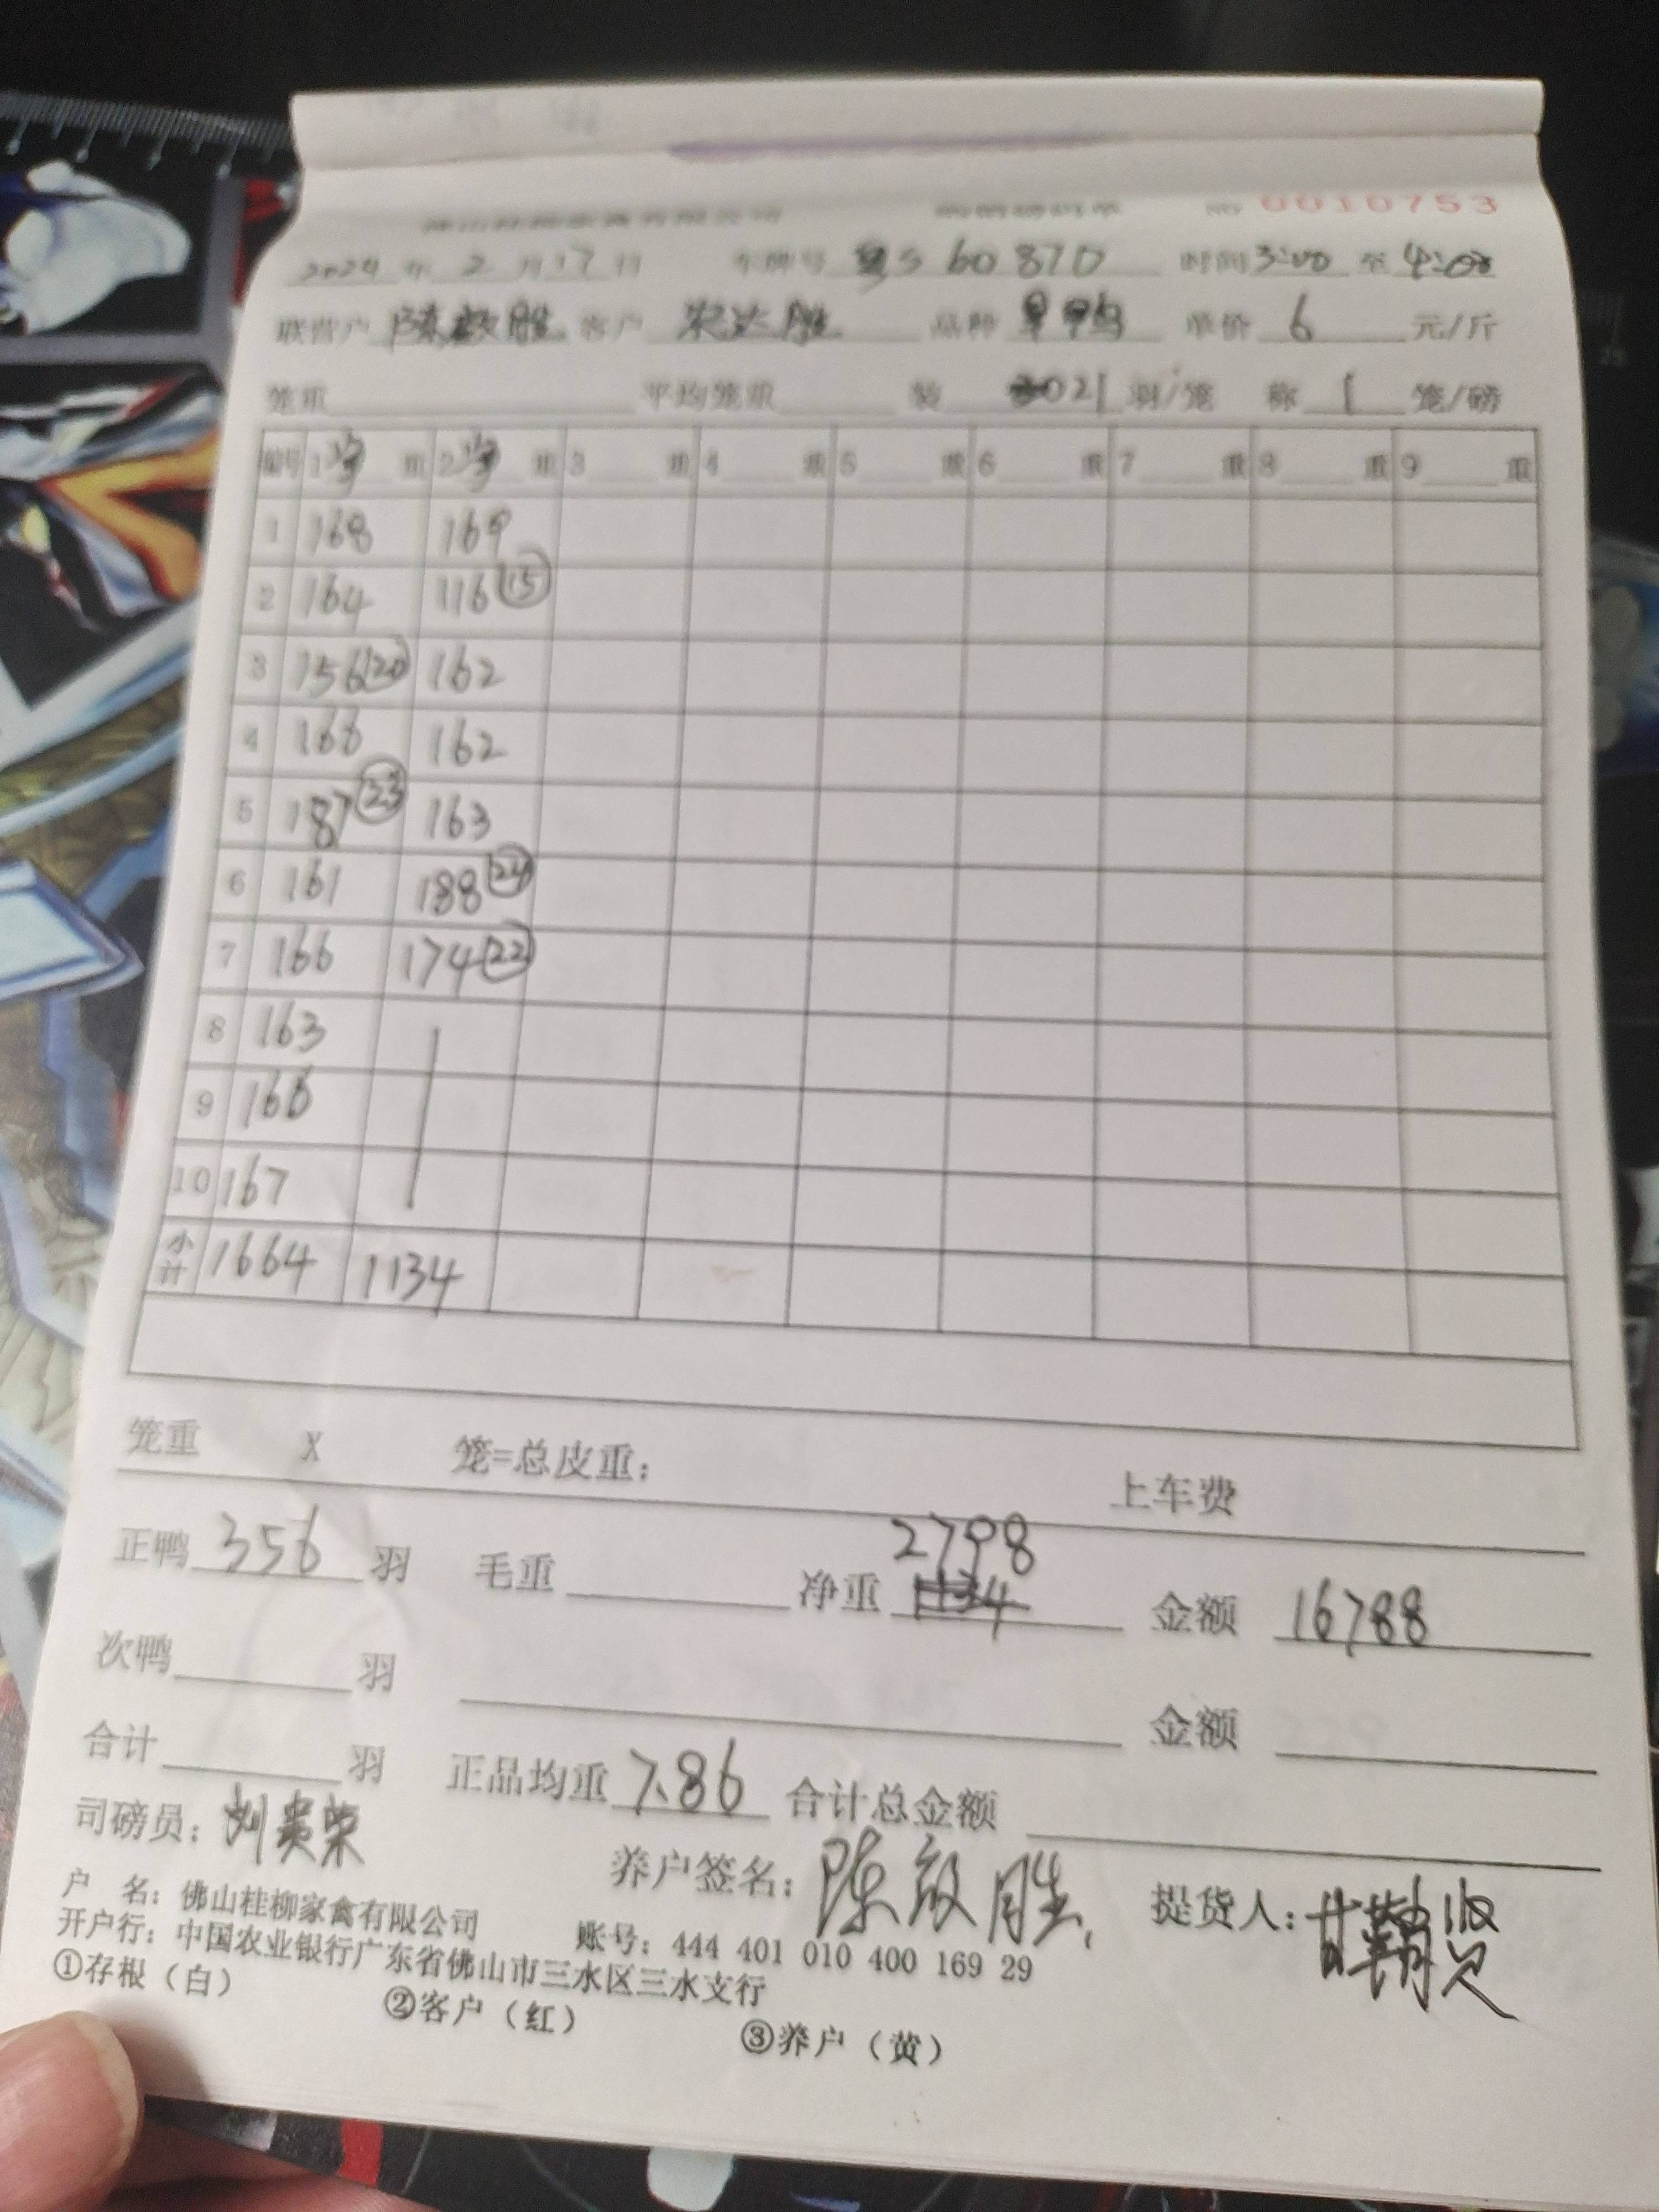 No 0010753
2024 年 2 月 17 日 车牌号 粤S 60870 时间 3:00 至 4:00
联营户 陈敏胜 客户 农达胜 品种 旱鸭 单价 6 元/斤
笼重 平均笼重 装 21 羽/笼 称 1 笼/磅
编号 1 重 2 重 3 重 4 重 5 重 6 重 7 重 8 重 9 重
1 168 169
2 164 116 ⑮
3 156 ⑳ 162
4 166 162
5 187 ㉓ 163
6 161 188 ㉔
7 166 174 ㉒
8 163
9 166
10 167
小计 1664 1134
笼重 X 笼=总皮重: 上车费
2798
正鸭 356 羽 毛重 净重 1134 金额 16788
次鸭 羽 金额
合计 羽 正品均重 7.86 合计总金额
司磅员: 刘贵荣 养户签名: 陈敏胜 提货人:
户 名: 佛山桂柳家禽有限公司 账号: 444 401 010 400 169 29
开户行: 中国农业银行广东省佛山市三水区三水支行
①存根(白) ②客户(红) ③养户(黄)